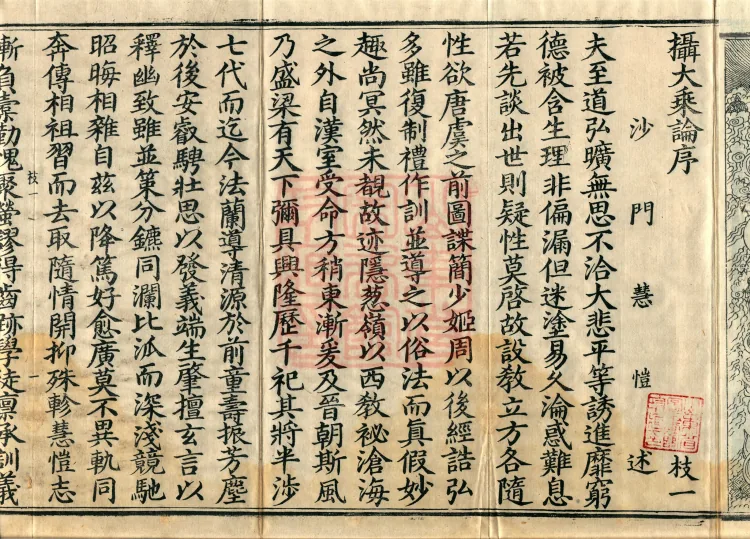 攝大乘論序
枝一
沙門慧愷述
夫至道弘曠無思不洽大悲平等誘進靡窮
德被含生理非偏漏但迷塗易久淪惑難息
若先談出世則疑性莫啓故設教立方各隨
性欲唐虞之前圖諜簡少姬周以後經誥弘
多雖復制禮作訓並導之以俗法而真假妙
趣尚冥然未覩故迹隱葱嶺以西教祕滄海
之外自漢室受命方稍東漸爰及晉朝斯風
乃盛梁有天下彌具興隆歷千祀其將半涉
七代而迄今法蘭導清源於前童壽振芳塵
於後安叡騁壯思以發義端生肇擅玄言以
釋幽致雖並策分鑣同瀾比派而深淺競馳
昭晦相雜自茲以降篤好愈廣莫不異軌同
奔傳相祖習而去取隨情開抑殊軫慧愷志
枝一
一
斬負橐勤愧聚螢謬得齒跡學徒稟承訓義